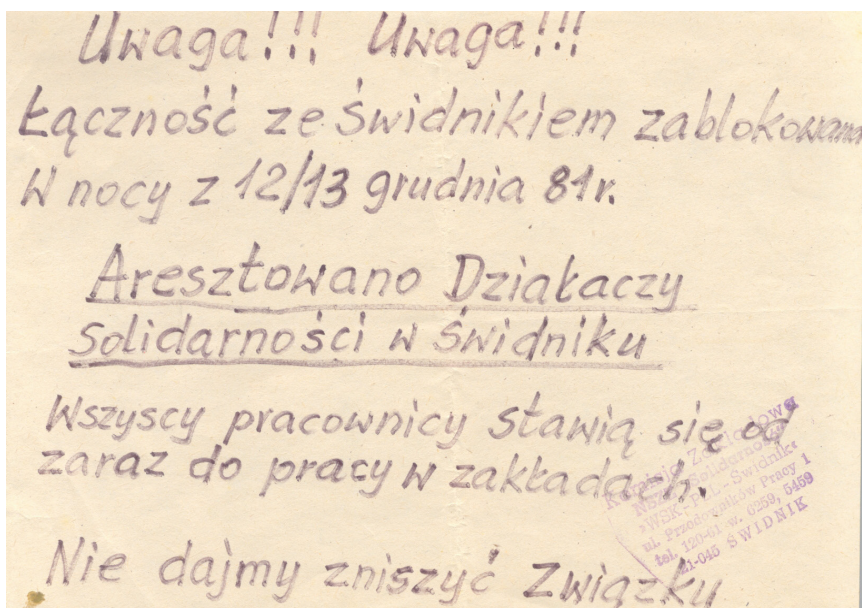 Uwaga!!! Uwaga!!!
Łączność ze Świdnikiem zablokowana
W nocy z 12/13 grudnia 81r.
Aresztowano Działaczy
Solidarności w Świdniku
Wszyscy pracownicy stawią się od
zaraz do pracy w zakładach.
Nie dajmy zniszyć Związku
Komisja Zakładowa
NSZZ "Solidarność"
"WSK-PZL-Świdnik"
ul. Przodowników Pracy 1
tel. 120-61 w. 6259, 5459
21-045 ŚWIDNIK